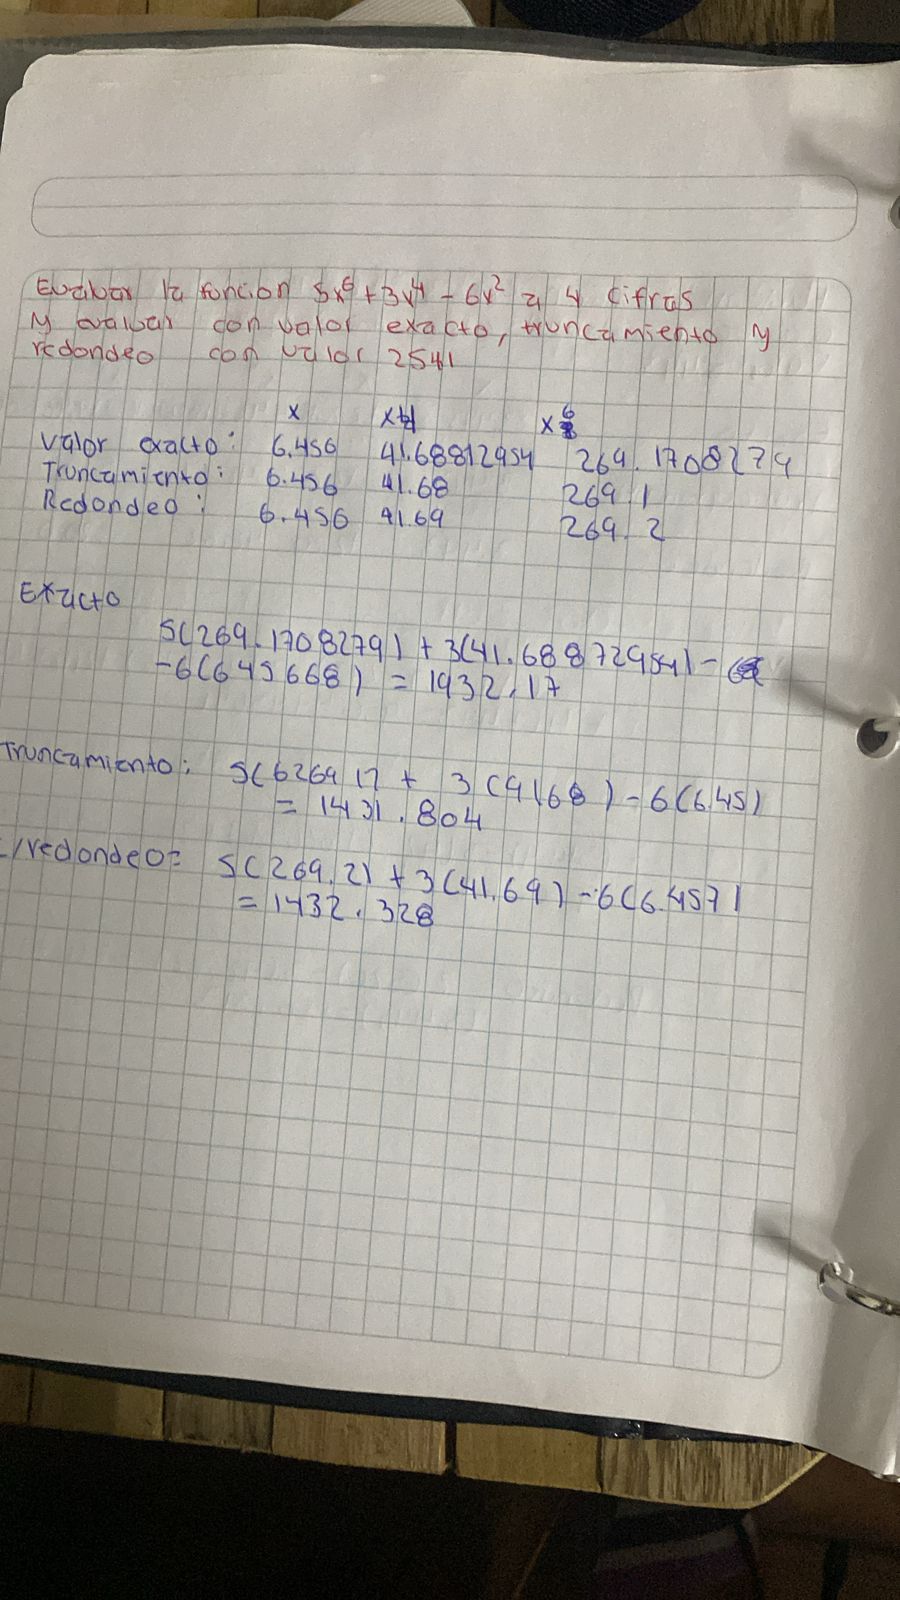 Evaluar la funcion 5x⁶ + 3x⁴ - 6x² a 4 cifras
y evaluar con valor exacto, truncamiento y
redondeo con valor 2541
x x4 x6
Valor exacto: 6.456 41.68812954 269.1708279
Truncamiento: 6.456 41.68 269.1
Redondeo: 6.456 41.69 269.2
Exacto
5(269.1708279) + 3(41.688729541) -
-6(6456681) = 1932.17
Truncamiento: 5(626917 + 3(4168) - 6(6.45)
= 1431.804
/redondeo= 5(269.2) + 3(41.69) - 6(6.457)
= 1432.328